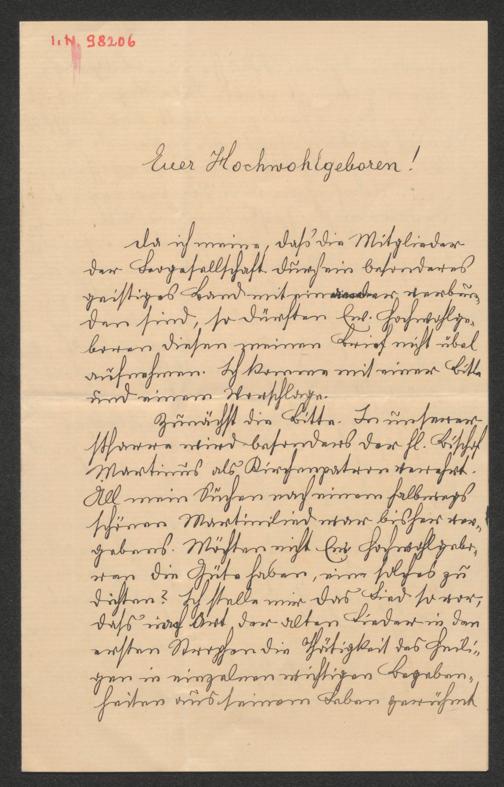 I.N. 98206
Euer Hochwohlgeboren!
Da ich meine, daß die Mitglieder
der Leogesellschaft durch ein besonderes
geistiges Band miteinander verbun-
den sind, so dürften Ew. Hochwohlge-
boren diesen meinen Brief nicht übel
aufnehmen. Ich komme mit einer Bitte
und einem Vorschlage.
Zunächst die Bitte. In unserer
Pfarre wird besonders der hl. Bischof
Martinus als Kirchenpatron verehrt.
All mein Suchen nach einem halbwegs
schönen Martinilied war bisher ver-
gebens. Möchten nicht Ew. Hochwohlgebo-
ren die Güte haben, ein solches zu
dichten? Ich stelle mir das Lied so vor,
dass nach Art der alten Lieder in den
ersten Strophen die Thätigkeit des Heili-
gen in einzelnen wichtigen Begeben-
heiten aus seinem Leben gerühmt